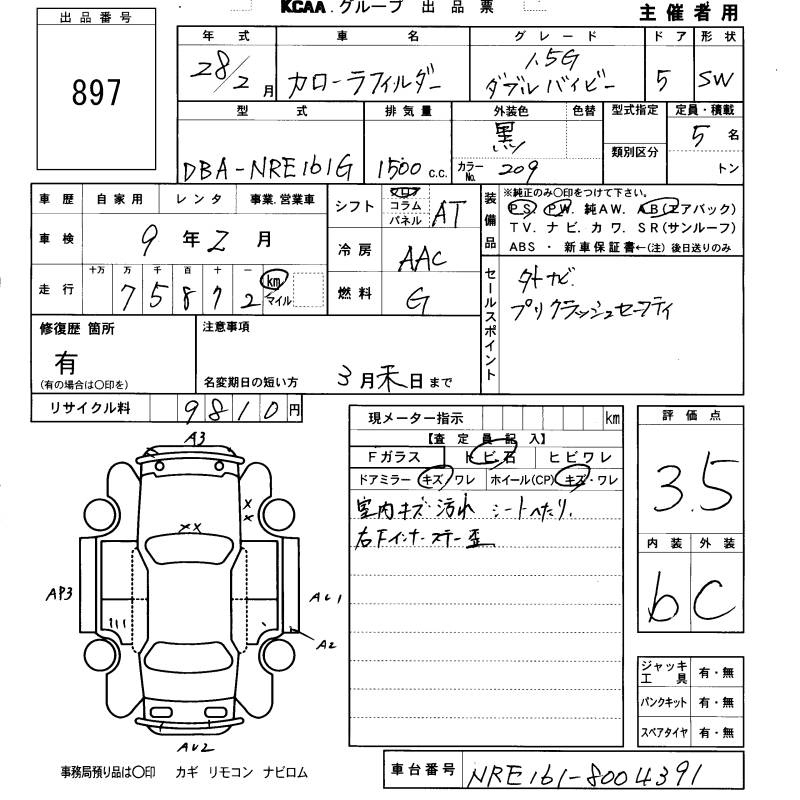 KCAA.グループ 出品票
主催者用
出品番号
897
年式 車名 グレード ドア 形状
28/2月 カローラフィルダー 1.5G ダブルバイビー 5 SW
型式 排気量 外装色 色替 型式指定 定員・積載
DBA-NRE161G 1500 c.c. 黒 カラーNo. 209 類別区分 5名 トン
車歴 自家用 レンタ 事業.営業車
車検 9年2月
走行 十万 万 千 百 十 一 km マイル
75872
シフト フロア コラム パネル AT
冷房 AAC
燃料 G
装備品 ※純正のみ〇印をつけて下さい。
PS. PW. 純AW. AB(エアバック)
TV. ナビ. カワ. SR(サンルーフ)
ABS ・ 新車保証書←(注) 後日送りのみ
セールスポイント
外ナビ
プリクラッシュセーフティ
修復歴 箇所
有
(有の場合は〇印を)
注意事項
名変期日の短い方 3月末日まで
リサイクル料 9810円
現メーター指示 km
【査定員記入】
Fガラス トビ石 ヒビワレ
ドアミラー キズ/ワレ ホイール(CP) キズ・ワレ
室内キズ 汚れ シートへたり.
右Fインナーステー歪
評価点
3.5
内装 外装
b C
A3
xx
x
x
AP3
AU1
A2
AU2
ジャッキ工具 有・無
パンクキット 有・無
スペアタイヤ 有・無
事務局預り品は〇印 カギ リモコン ナビロム
車台番号 NRE161-8004391